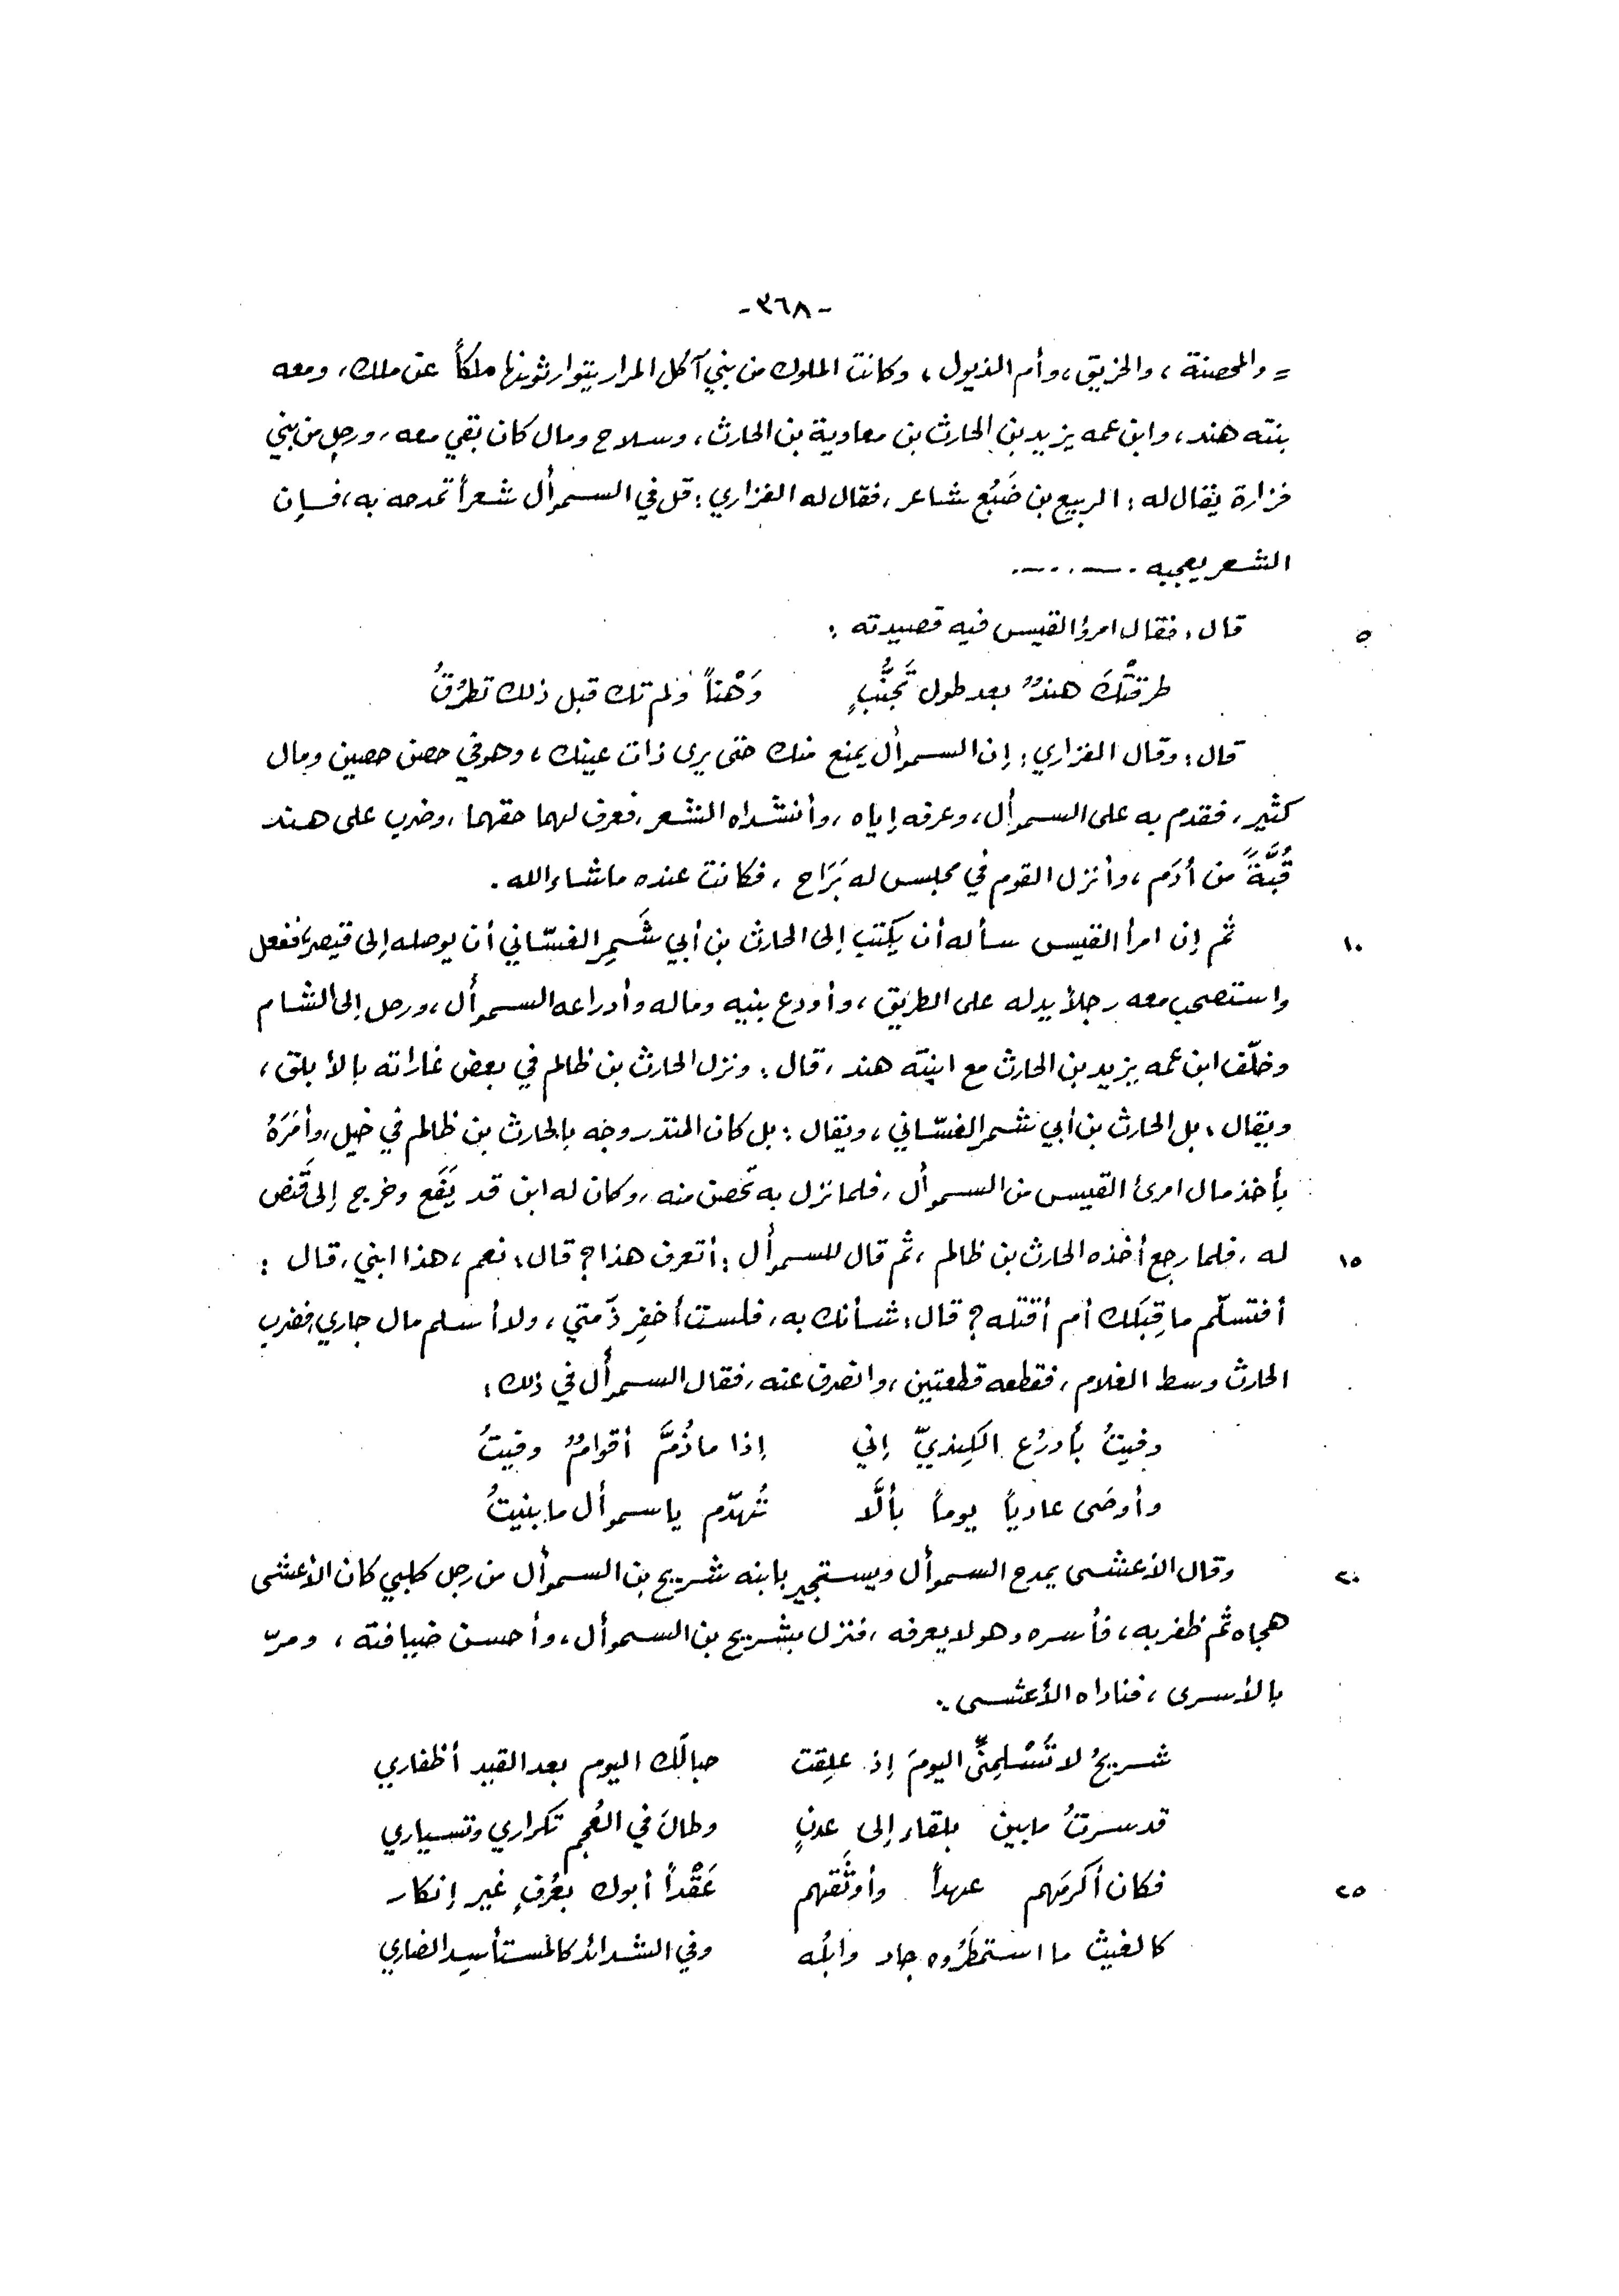 -٣٦٨-
= والمحصنة ، والخريق ، وأم الذيول ، وكانت الملوك من بني آكل المرار يتوارثونها ملكاً عن ملك ، ومعه
بنته هند ، وابن عمه يزيد بن الحارث بن معاوية بن الحارث ، وسلاح ومال كان بقي معه ، ورجل من بني
فزارة يقال له : الربيع بن ضَبُع شاعر ، فقال له الفزاري : قل في السموأل شعراً تمدحه به ، فإن
الشعر يعجبه . ــ . . ــ . ــ .
٥ قال : فقال امرؤ القيس فيه قصيدته :
طرقتْكَ هندٌ بعد طول تَجَنُّبٍ وَهْناً ولم تك قبل ذلك تطرُقُ
قال : وقال الفزاري : إن السموأل يمنع منك حتى يرى ذات عينك ، وهو في حصن حصين ومال
كثير ، فقدم به على السموأل ، وعرفه إياه ، وأنشداه الشعر ، فعرف لهما حقهما ، وضرب على هند
قُبَّةً من أدَم ، وأنزل القوم في مجلس له بَرَاح ، فكانت عنده ماشاء الله .
١٠ ثم إن امرأ القيس سأله أن يكتب إلى الحارث بن أبي شَمِر الغسّاني أن يوصله إلى قيصر ، ففعل
واستصحب معه رجلاً يدله على الطريق ، وأودع بنيه وماله وأدراعه السموأل ، ورحل إلى الشام
وخلّف ابن عمه يزيد بن الحارث مع ابنته هند ، قال : ونزل الحارث بن ظالم في بعض غاراته بالأبلق ،
ويقال : بل الحارث بن أبي شمر الغسّاني ، ويقال : بل كان المنذر وجه بالحارث بن ظالم في خيل ، وأمَرَهُ
بأخذ مال امرئ القيس من السموأل ، فلما نزل به تحصن منه ، وكان له ابن قد يَفَع وخرج إلى قَنَص
١٥ له ، فلما رجع أخذه الحارث بن ظالم ، ثم قال للسموأل : أتعرف هذا ؟ قال : نعم ، هذا ابني ، قال :
أفتسلّم ما قِبَلك أم أقتله ؟ قال : شأنك به ، فلست أخفِر ذمّتي ، ولا أسلم مال جاري ، فضرب
الحارث وسط الغلام ، فقطعه قطعتين ، وانصرف عنه ، فقال السموأل في ذلك :
وفيتُ بأدرُع الكِنديّ إني إذا ما ذُمَّ أقوامٌ وفيتُ
وأوصَى عادياً يوماً بألَّا تُهدّم يا سموأل ما بنيتُ
٢٠ وقال الأعشى يمدح السموأل ويستجير بابنه شريح بن السموأل من رجل كلبي كان الأعشى
هجاه ثم ظفر به ، فأسره وهو لا يعرفه ، فنزل بشريح بن السموأل ، وأحسن ضيافته ، ومرّ
بالأسرى ، فناداه الأعشى :
شريحُ لا تُسْلِمنّي اليومَ إذ علِقت حبالَك اليوم بعد القيد أظفاري
قد سرتُ ما بين بلقاء إلى عدنٍ وطال في العُجم تكراري وتسياري
٢٥ فكان أكرمَهم عهداً وأوثَقهم عَقْداً أبوك بعُرفٍ غير إنكار
كالغيث ما استمطَرُوه جاد وابلُه وفي الشدائد كالمستأسِد الضاري